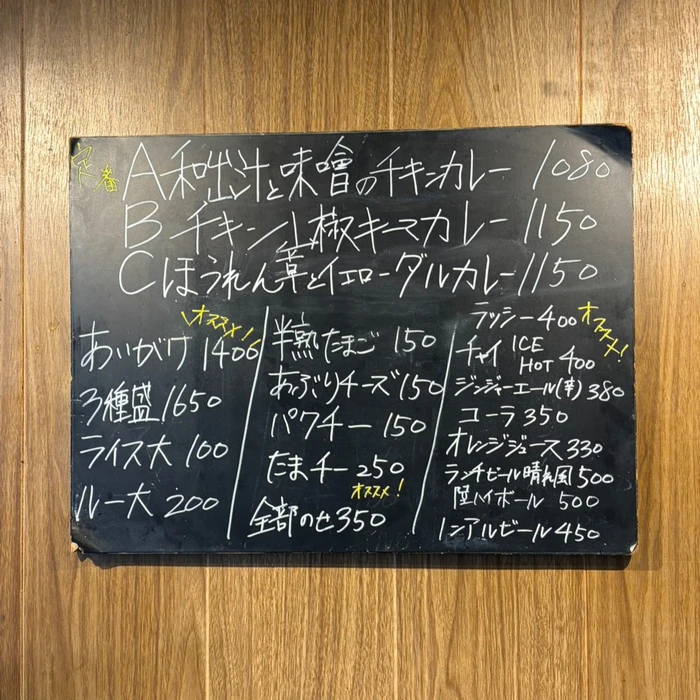 定番
A 和出汁と味噌のチキンカレー 1080
B チキン山椒キーマカレー 1150
C ほうれん草とイエローダルカレー 1150
オススメ!
あいがけ 1400
3種盛 1650
ライス大 100
ルー大 200
半熟たまご 150
あぶりチーズ 150
パクチー 150
たまチー 250
オススメ!
全部のせ 350
ラッシー 400 オススメ!
チャイ ICE HOT 400
ジンジャーエール(辛) 380
コーラ 350
オレンジジュース 330
ランチビール晴れ風 500
陸ハイボール 500
ノンアルビール 450